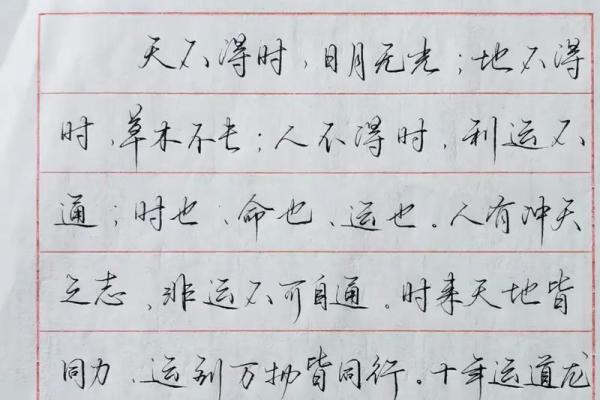 天不得时，日月无光；地不得
时，草木不长；人不得时，利运不
通；时也、命也、运也。人有冲天
之志，非运不可自通。时来天地皆
同力，运到万物皆同行。十年运道龙